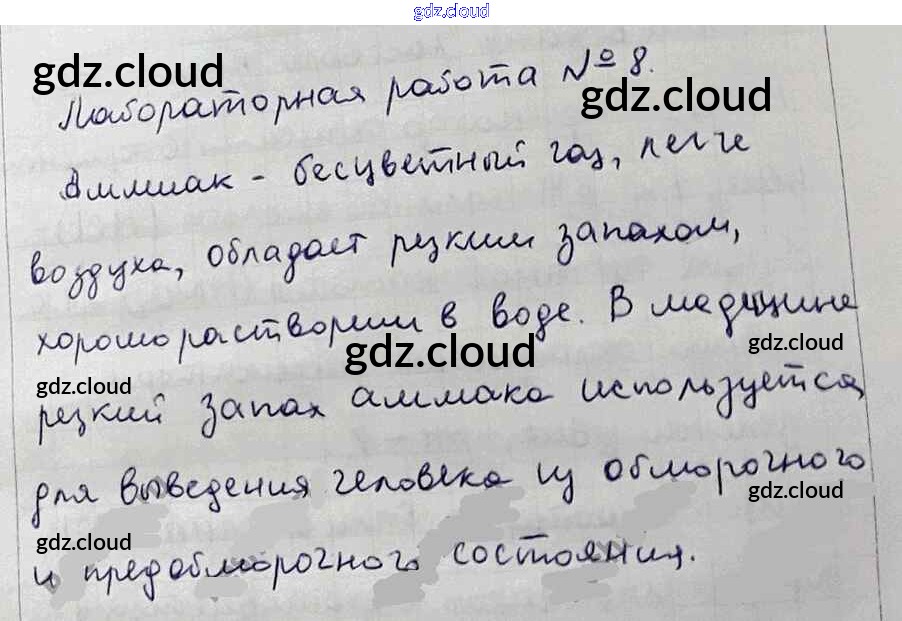 gdz.cloud
gdz.cloud
Лабораторная работа № 8.
gdz.cloud
Аммиак - бесцветный газ, легче
воздуха, обладает резким запахом,
хорошо растворим в воде. В медицине
gdz.cloud
gdz.cloud
gdz.cloud
резкий запах аммака используется
для выведения человека из обморочного
gdz.cloud
gdz.cloud
и предобморочного состояния.